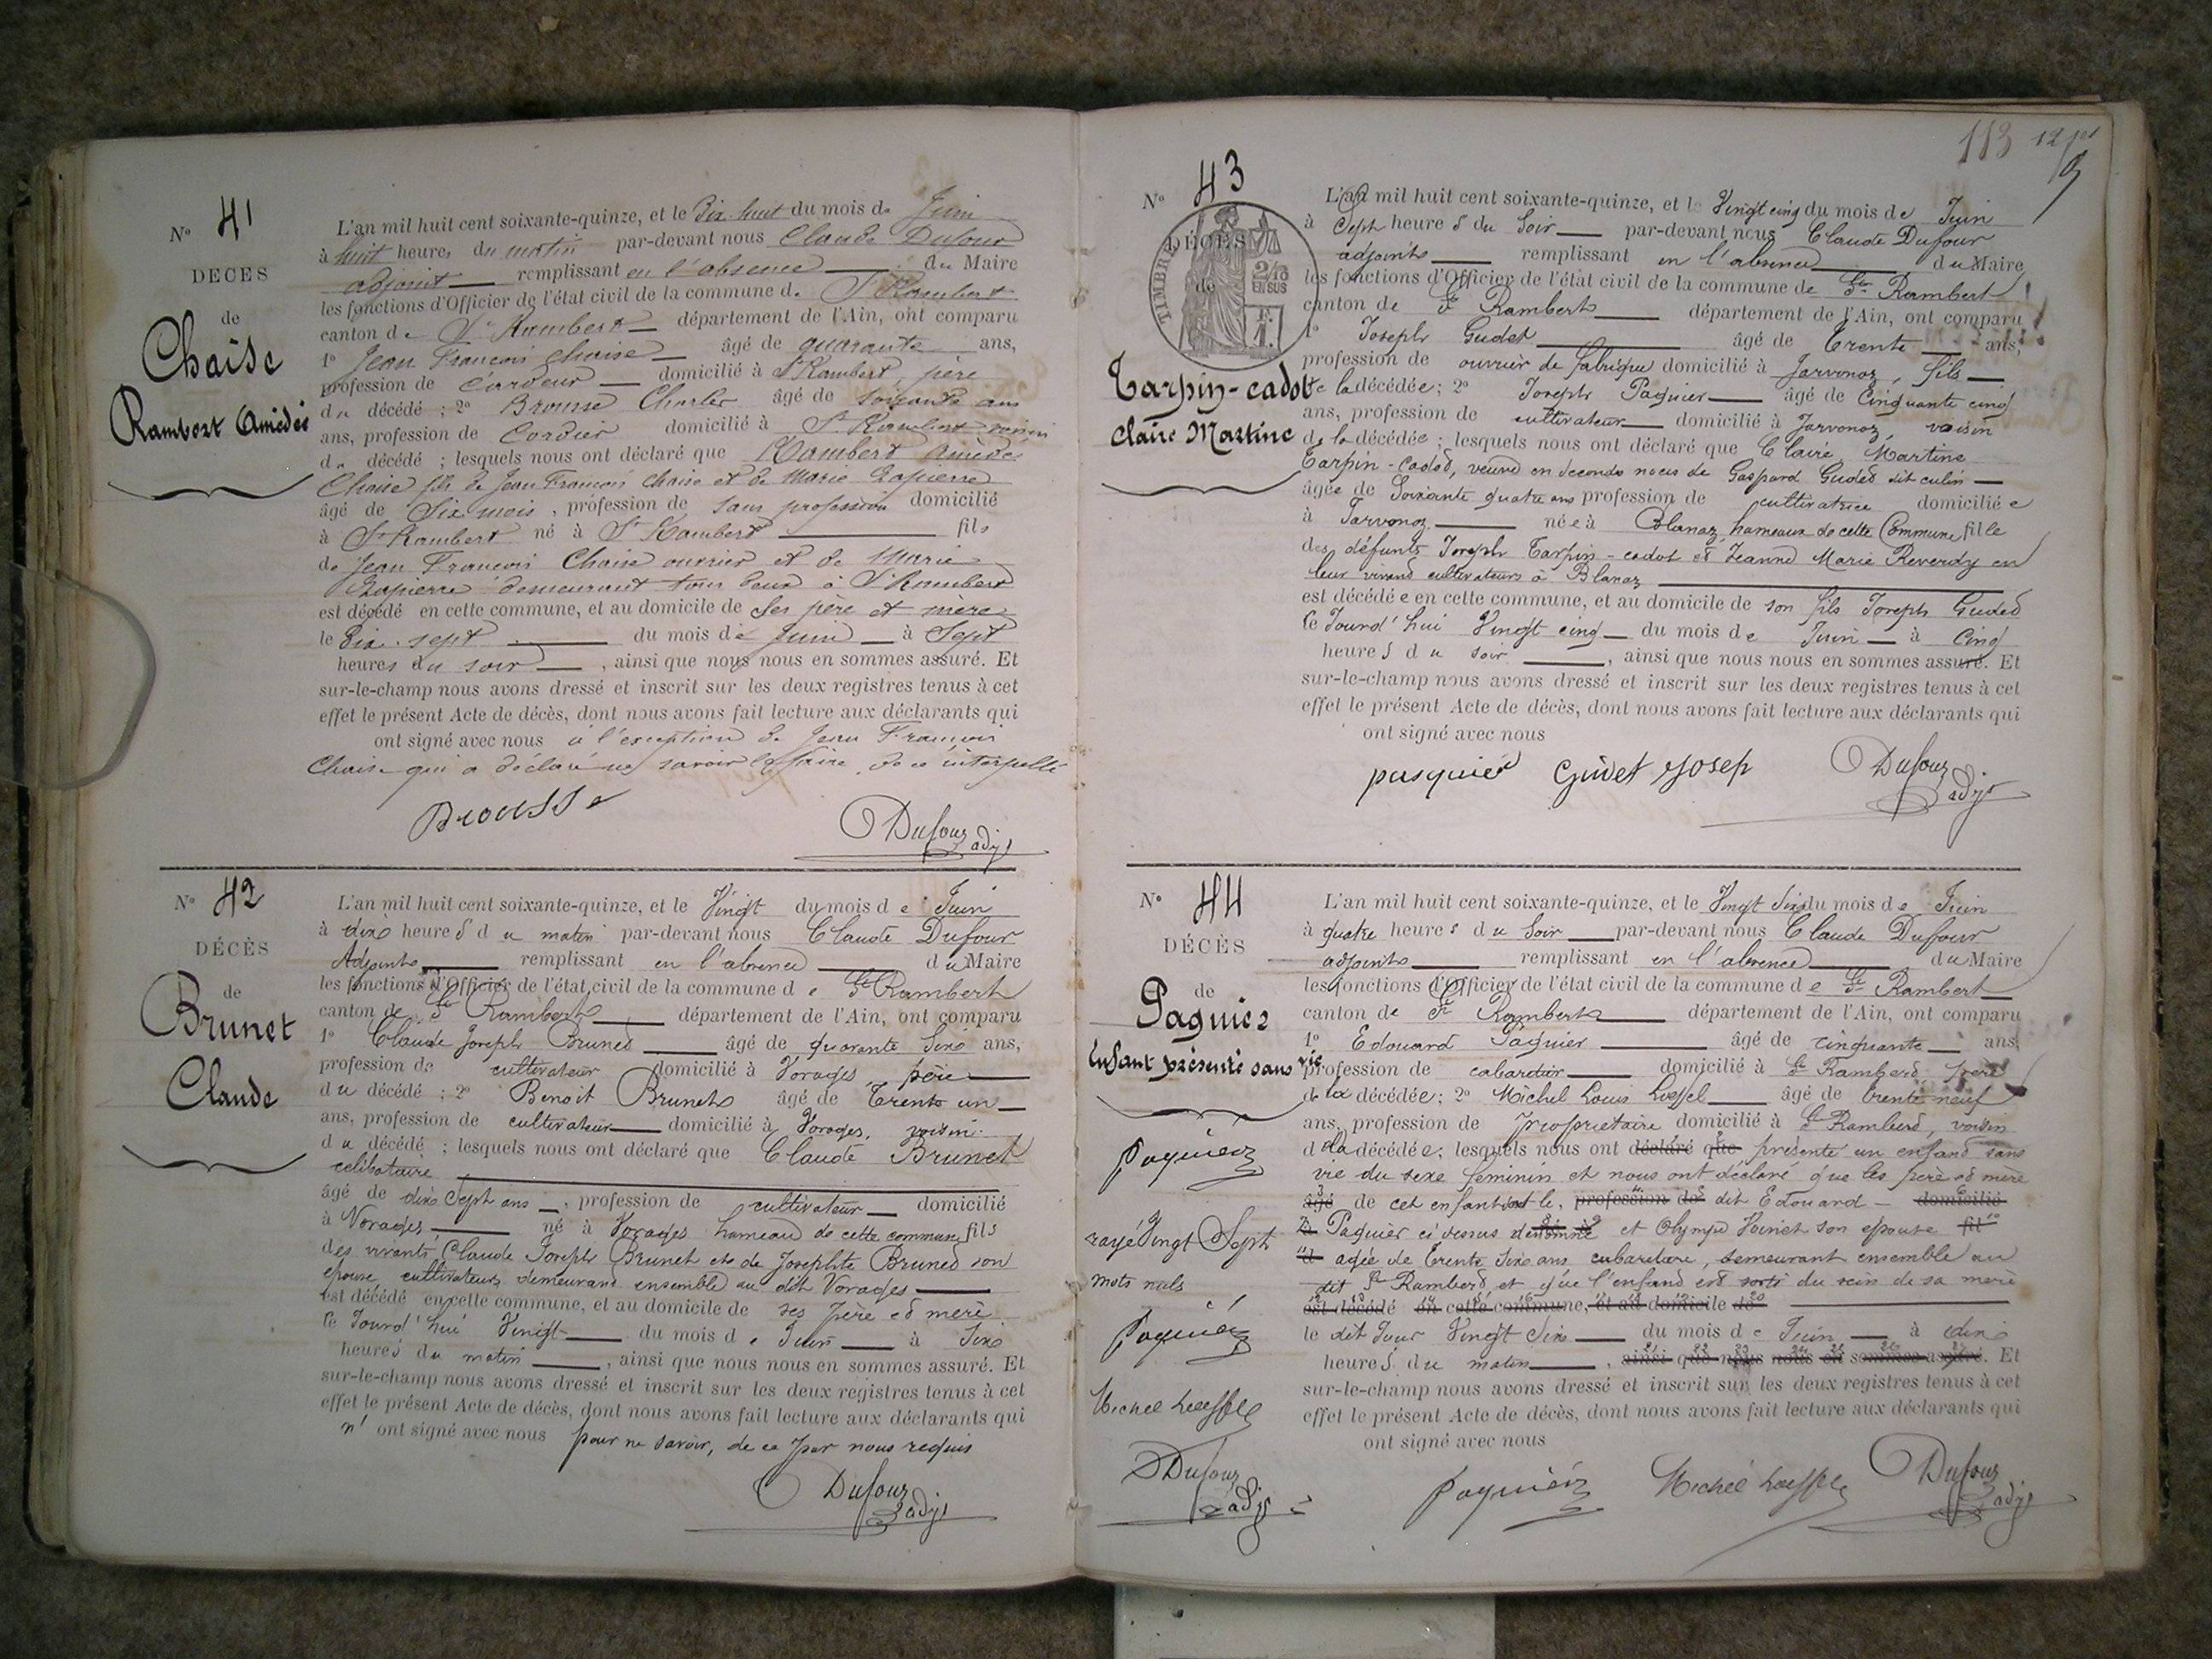 N° 41
DÉCÈS
de
Chaise
Rambert Amédée
L'an mil huit cent soixante-quinze, et le Dix-huit du mois de Juin
à huit heures du matin par-devant nous Claude Dufour
adjoint remplissant en l'absence du Maire
les fonctions d'Officier de l'état civil de la commune de St Rambert
canton de St Rambert département de l'Ain, ont comparu
1° Jean François Chaise âgé de quarante ans,
profession de Cardeur domicilié à St Rambert, père
du décédé ; 2° Brousse Charles âgé de soixante ans
ans, profession de Cordier domicilié à St Rambert voisin
du décédé ; lesquels nous ont déclaré que Rambert Amédée
Chaise fils de Jean François Chaise et de Marie Lapierre
âgé de Six mois, profession de sans profession domicilié
à St Rambert né à St Rambert fils
de Jean François Chaise ouvrier et de Marie
Lapierre demeurant tous deux à St Rambert
est décédé en cette commune, et au domicile de ses père et mère
le Dix-sept du mois de Juin à Sept
heures du soir, ainsi que nous nous en sommes assuré. Et
sur-le-champ nous avons dressé et inscrit sur les deux registres tenus à cet
effet le présent Acte de décès, dont nous avons fait lecture aux déclarants qui
ont signé avec nous à l'exception de Jean François
Chaise qui a déclaré ne savoir le faire, de ce interpellé
Brousse
Dufour adjt
N° 42
DÉCÈS
de
Brunet
Claude
L'an mil huit cent soixante-quinze, et le Vingt du mois de Juin
à dix heures du matin par-devant nous Claude Dufour
Adjoint remplissant en l'absence du Maire
les fonctions d'Officier de l'état civil de la commune de St Rambert
canton de St Rambert département de l'Ain, ont comparu
1° Claude Joseph Brunet âgé de quarante Six ans,
profession de cultivateur domicilié à Vorages, père
du décédé ; 2° Benoit Brunet âgé de Trente un
ans, profession de cultivateur domicilié à Vorages, voisin
du décédé ; lesquels nous ont déclaré que Claude Brunet
célibataire
âgé de dix Sept ans, profession de cultivateur domicilié
à Vorages, né à Vorages hameau de cette commune fils
des vivants Claude Joseph Brunet et de Josephte Brunet son
épouse, cultivateurs demeurant ensemble au dit Vorages
est décédé en cette commune, et au domicile de ses père et mère
le Jourd'hui Vingt du mois de Juin à Six
heures du matin, ainsi que nous nous en sommes assuré. Et
sur-le-champ nous avons dressé et inscrit sur les deux registres tenus à cet
effet le présent Acte de décès, dont nous avons fait lecture aux déclarants qui
n'ont signé avec nous pour ne savoir, de ce par nous requis
Dufour adjt
113
N° 43
DÉCÈS
de
TIMBRE
2/10 EN SUS
Tarpin-cadot
Claire Martine
L'an mil huit cent soixante-quinze, et le Vingt cinq du mois de Juin
à Sept heures du Soir par-devant nous Claude Dufour
adjoint remplissant en l'absence du Maire
les fonctions d'Officier de l'état civil de la commune de St Rambert
canton de St Rambert département de l'Ain, ont comparu
1° Joseph Gudet âgé de Trente ans,
profession de ouvrier de fabrique domicilié à Javornoz, fils
de la décédée ; 2° Joseph Paquier âgé de Cinquante cinq
ans, profession de cultivateur domicilié à Javornoz, voisin
de la décédée ; lesquels nous ont déclaré que Claire Martine
Tarpin-Cadot, veuve en seconde noces de Gaspard Gudet dit culin
âgée de Soixante quatre ans profession de cultivatrice domiciliée
à Javornoz née à Blanaz hameaux de cette Commune fille
des défunts Joseph Tarpin-cadot et Jeanne Marie Reverdy en
leur vivant cultivateurs à Blanaz
est décédée en cette commune, et au domicile de son fils Joseph Gudet
le Jourd'hui Vingt cinq du mois de Juin à Cinq
heures du soir, ainsi que nous nous en sommes assuré. Et
sur-le-champ nous avons dressé et inscrit sur les deux registres tenus à cet
effet le présent Acte de décès, dont nous avons fait lecture aux déclarants qui
ont signé avec nous
pasquier Gudet Josep Dufour adjt
N° 44
DÉCÈS
de
Paquier
Enfant présenté sans vie
L'an mil huit cent soixante-quinze, et le Vingt Six du mois de Juin
à quatre heures du Soir par-devant nous Claude Dufour
adjoint remplissant en l'absence du Maire
les fonctions d'Officier de l'état civil de la commune de St Rambert
canton de St Rambert département de l'Ain, ont comparu
1° Edouard Paquier âgé de cinquante ans,
profession de cabaretier domicilié à St Rambert père
de la décédée ; 2° Michel Louis Loeffel âgé de trente neuf
ans, profession de Propriétaire domicilié à St Rambert, voisin
de la décédée ; lesquels nous ont déclaré que présenté un enfant sans
vie du sexe féminin et nous ont déclaré que les père et mère
âgé de cet enfant sont le, profession de dit Edouard domicilié
Paquier ci dessus dénommé et Olympe Voinet son épouse fil
d agée de Trente Six ans cabaretière, demeurant ensemble au
dit St Rambert et que l'enfant est sorti du sein de sa mère
est décédé en cette commune, et au domicile de
le dit Jour Vingt Six du mois de Juin à dix
heures du matin, ainsi que nous nous en sommes assuré. Et
sur-le-champ nous avons dressé et inscrit sur les deux registres tenus à cet
effet le présent Acte de décès, dont nous avons fait lecture aux déclarants qui
ont signé avec nous
Paquier Michel Loeffel Dufour adjt
Paquier
rayé Vingt Sept
mots nuls
Paquier
Michel Loeffel
Dufour adjt